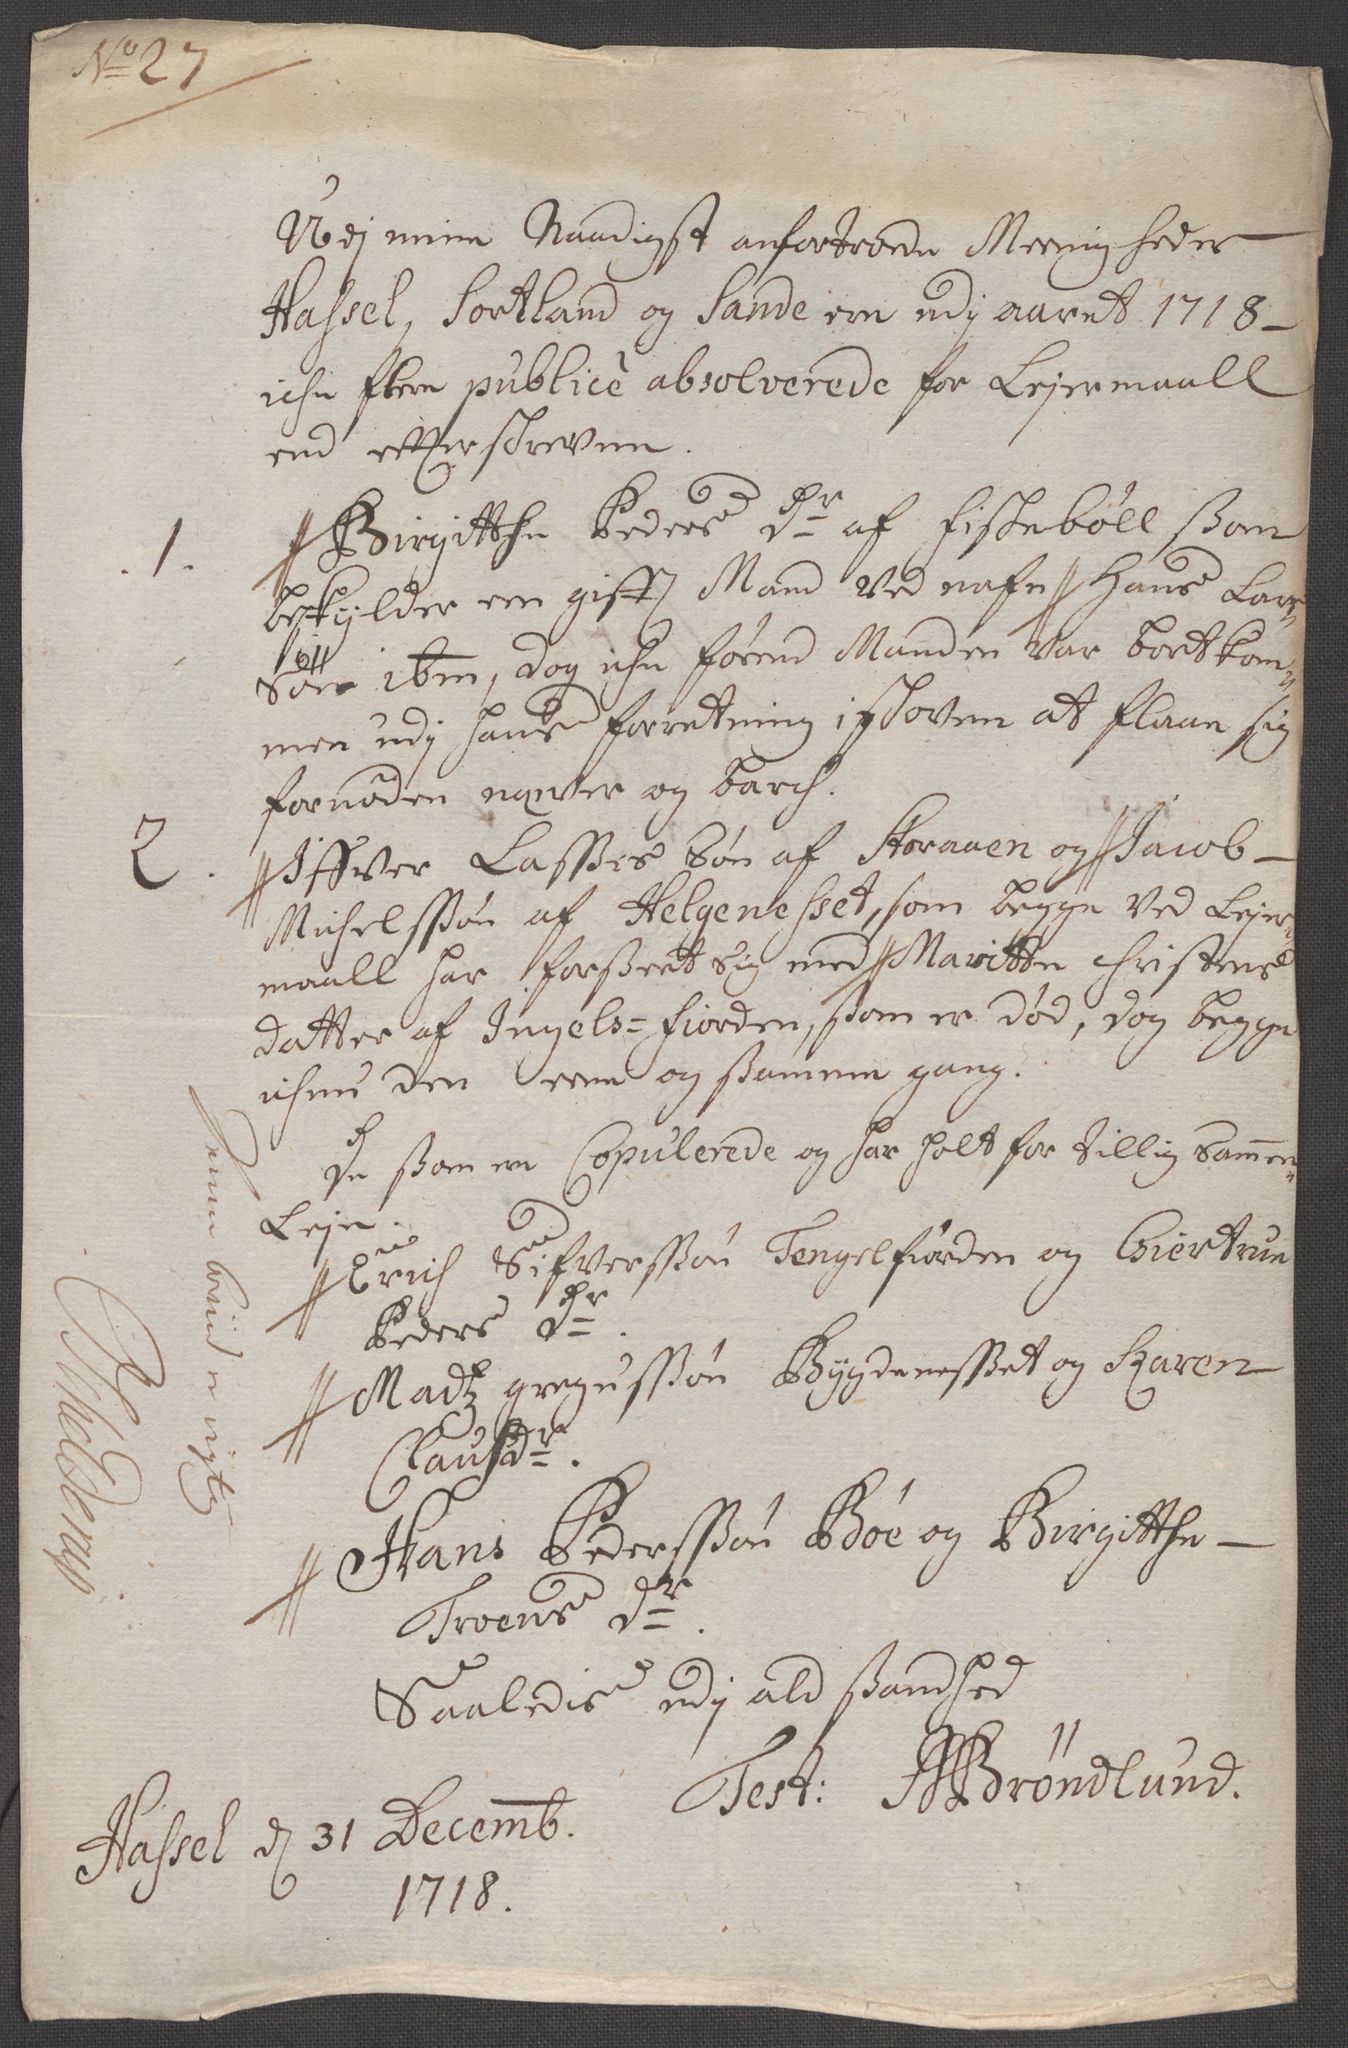 No 27
Udj mine Naadigst anfortroede Meenigheder
Hassel, Sortland og Sande ere udj aaret 1718
iche flere publicè absolverede for Lejermaall
end efterskrevne.
.1. Birgitthe Peders dr af Fiskebøll ßom
beskylder een gifft Mand ved nafn Hans Lars
Søn ibm, dog iche førend Manden var bortkom-
men udj hans forretning i skoven at flaae sig
fornøden næver og barch.
2. Iffver Lasses Søn af Storaaen og Jacob
Michelssøn af Helgenesset, som begge ved Lejer
maall har forßeet sig med Maritte Christens
datter af Ingels=fiorden, ßom er død, dog begge
iche den eene og ßamme gang.
De ßom ere Copulerede og har holt for tillig Sammen
Leje.
Erich Sifverssøn Tengelfiorden og Giertrue
Peders dr.
Madtz gregussøn Bygdenesset og Karen
Clausdr.
Hans Pederssøn Bøe og Birgitthe
Troens dr.
Saaledis udj ald ßandhed
Test: Brøndlund.
Hassel d 31 Decemb.
1718.